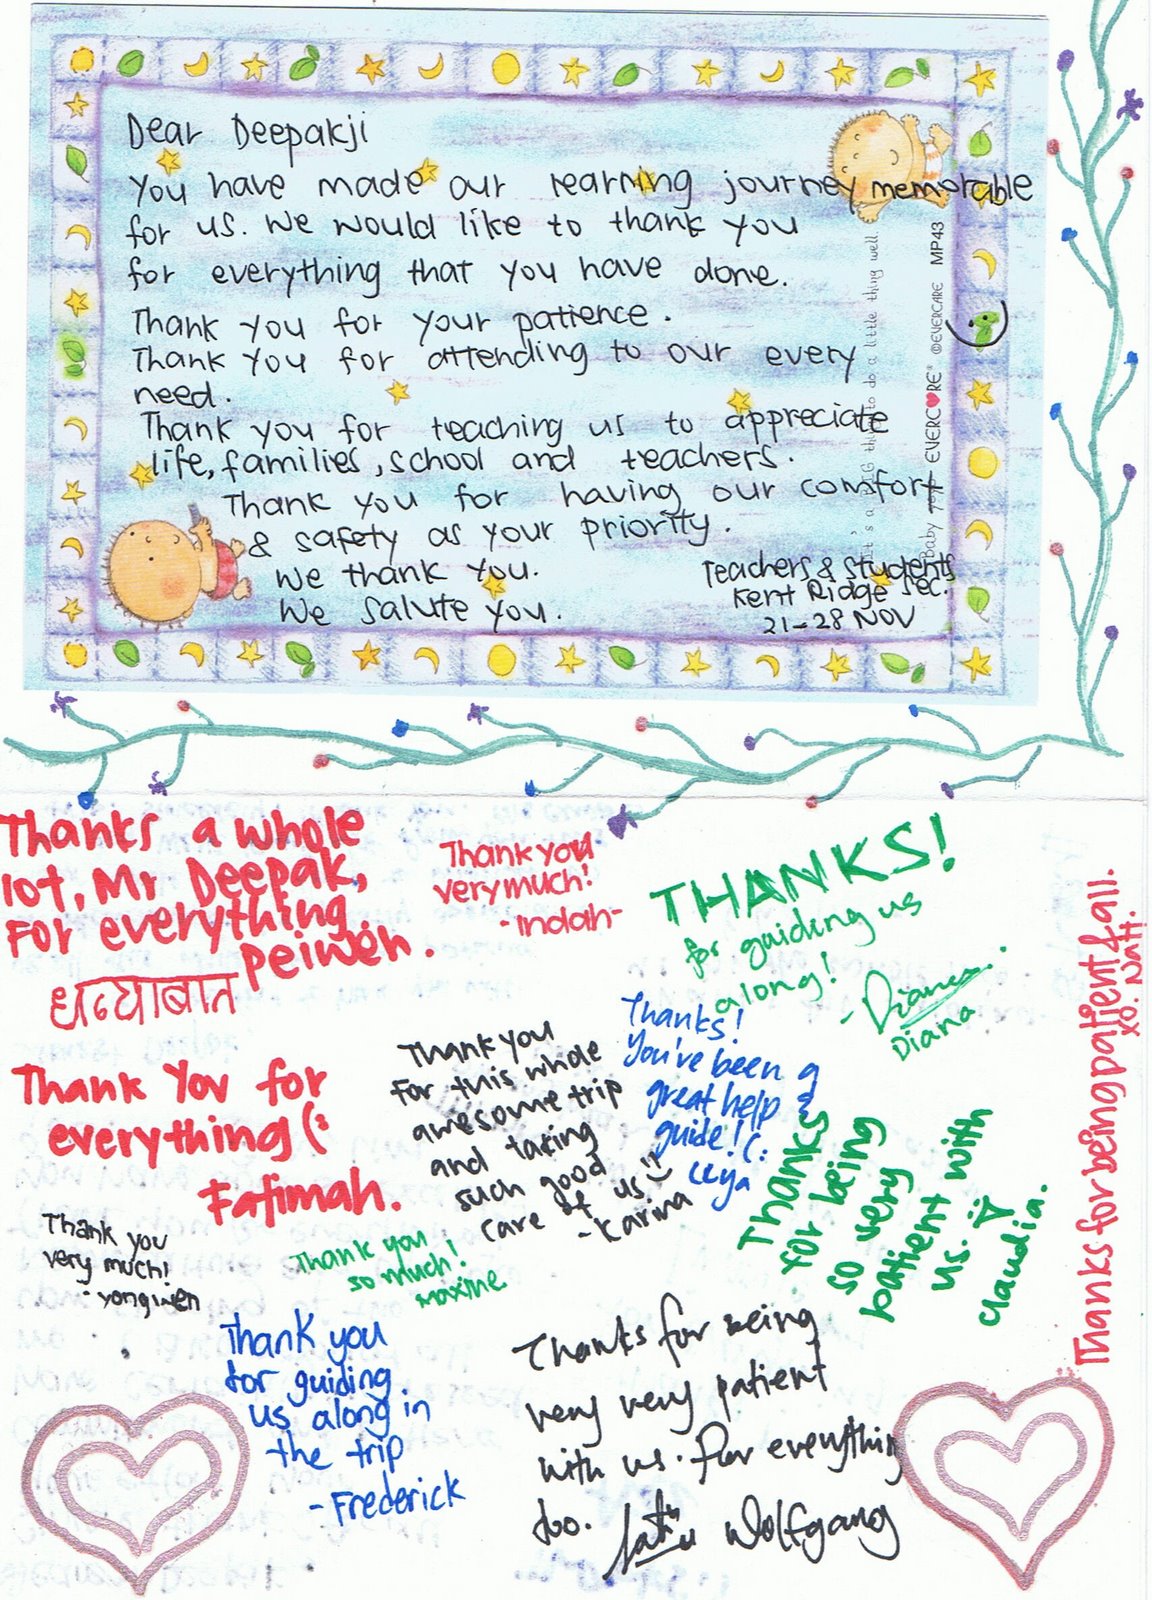 Dear Deepakji
You have made our rearning journey memorable
for us. We would like to thank you
for everything that you have done.
Thank you for your patience.
Thank you for attending to our every
need.
Thank you for teaching us to appreciate
life, families, school and teachers.
Thank you for having our comfort
& safety as your priority.
We thank you.
We salute you.
Teachers & Students
Kent Ridge Sec.
21-28 NOV
It's a BIG thing to do a little thing well
Baby Tot EVERCARE ©EVERCARE MP43
Thanks a whole
lot, Mr Deepak,
For everything
peiwen.
धन्याबात
Thank you
very much!
-Indah-
THANKS!
for guiding us
along!
- Diana
Diana
Thanks for being patient & all.
xo. Natt.
Thank You for
everything (:
Fatimah.
Thank you
for this whole
awesome trip
and taking
such good
care of us
- Karina
Thanks!
You've been a
great help &
guide! (:
Thanks
for being
so very
patient with
us.
Claudia.
Thank you
very much!
- yongwen
Thank you
so much!
Maxine
Thank you
for guiding
us along in
the trip
- Frederick
Thanks for being
very very patient
with us. for everything
too. Wolfgang